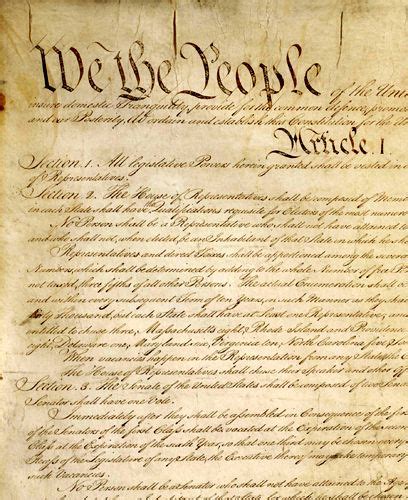 We the People of the Unit
insure domestic Tranquility, provide for the common defence, promo
and our Posterity, do ordain and establish this Constitution for the
Article. I.
Section. 1. All legislative Powers herein granted shall be vested in a
of Representatives.
Section. 2. The House of Representatives shall be composed of Mem
in each State shall have Qualifications requisite for Electors of the most numero
No Person shall be a Representative who shall not have attained to
and who shall not, when elected, be an Inhabitant of that State in which he sha
Representatives and direct Taxes shall be apportioned among the several
Numbers, which shall be determined by adding to the whole Number of free P
not taxed, three fifths of all other Persons. The actual Enumeration shall
and within every subsequent Term of ten Years, in such Manner as they sha
thirty Thousand, but each State shall have at Least one Representative; and
entitled to chuse three, Massachusetts eight, Rhode Island and Providence
eight, Delaware one, Maryland six, Virginia ten, North Carolina five, Sou
When vacancies happen in the Representation from any State, the
The House of Representatives shall chuse their Speaker and other Of
Section. 3. The Senate of the United States shall be composed of two Sena
Senator shall have one Vote.
Immediately after they shall be assembled in Consequence of the fir
of the Senators of the first Class shall be vacated at the Expiration of the
Class at the Expiration of the sixth Year, so that one third may be chosen every
Recess of the Legislature of any State, the Executive thereof may make temporary
such Vacancies.
No Person shall be a Senator who shall not have attained to the Ag